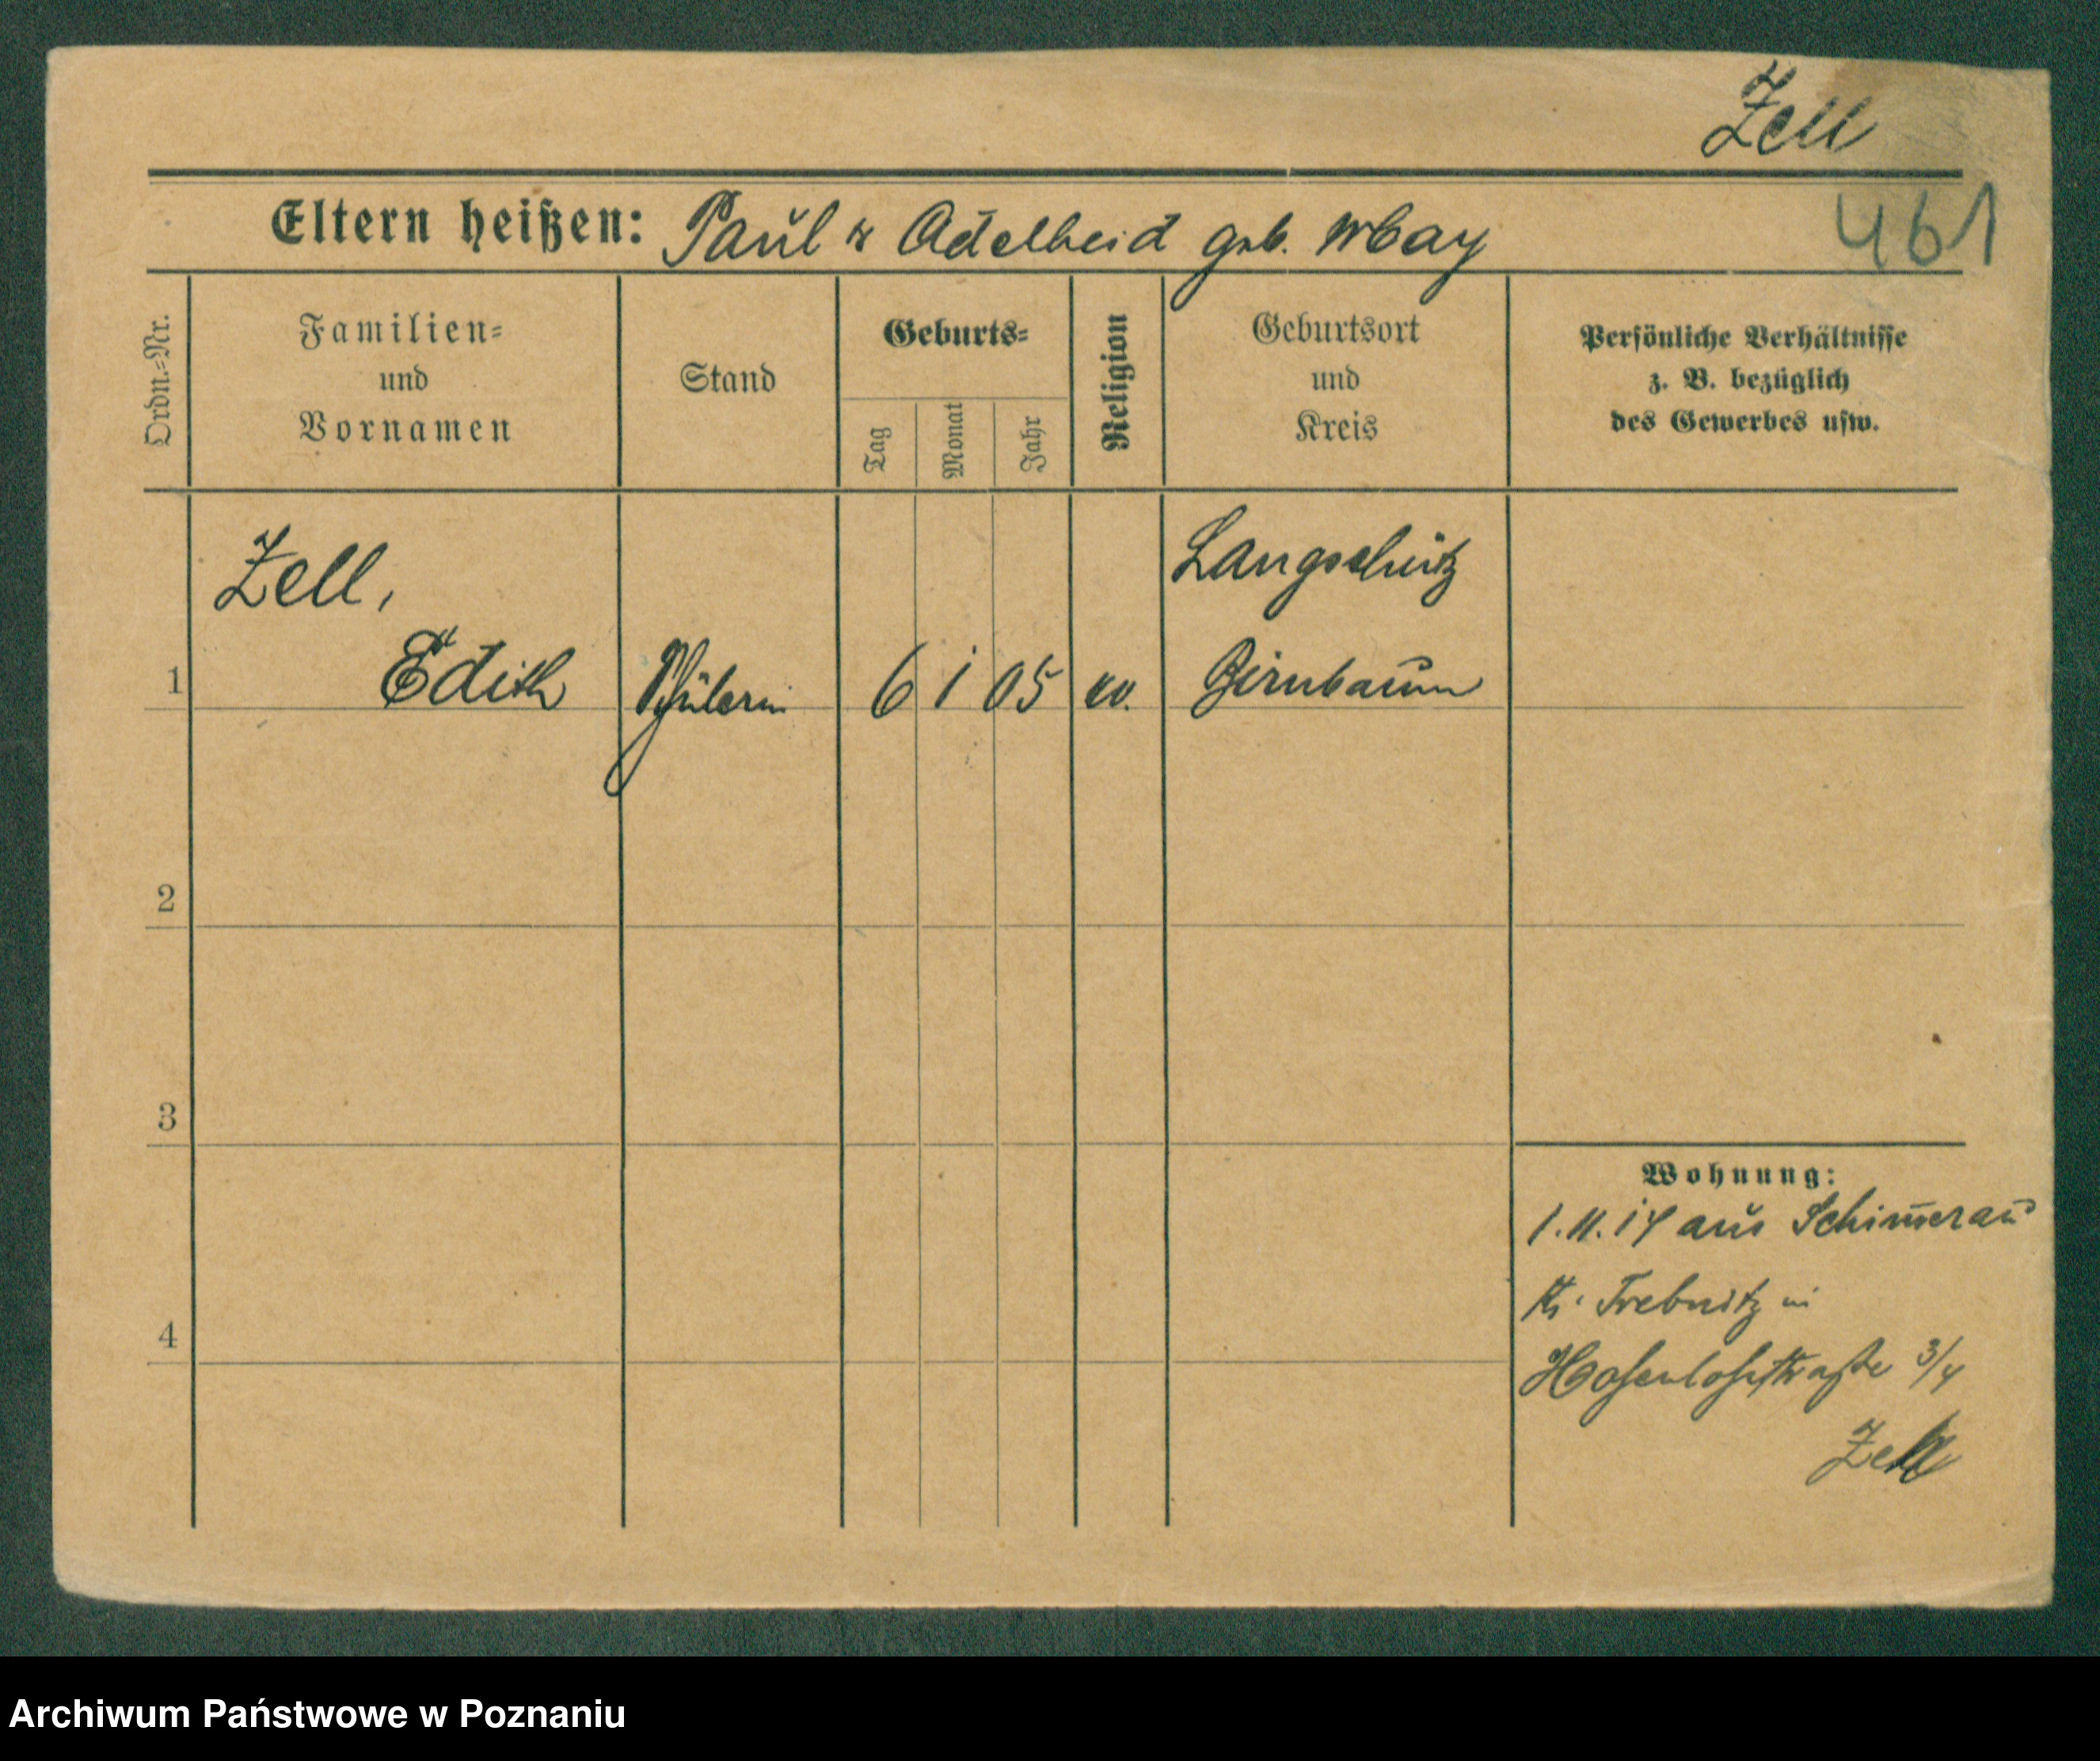 Zell
461
Eltern heißen: Paul & Adelheid geb. May
Ordn.=Nr.
Familien=
und
Vornamen
Stand
Geburts=
Tag
Monat
Jahr
Religion
Geburtsort
und
Kreis
Persönliche Verhältnisse
z. B. bezüglich
des Gewerbes usw.
1
Zell,
Edith
Schülerin
6 1 05
ev.
Langschütz
Birnbaum
2
3
4
Wohnung:
1.11.14 aus Schim̅erau
Kr. Trebnitz in
Hohenlohestraße 3/4
Zell
Archiwum Państwowe w Poznaniu